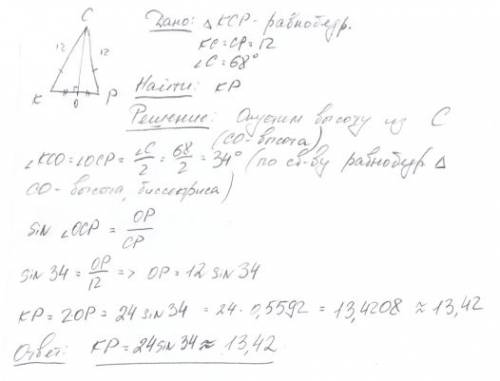 C
Дано: △ KCP - равнобедр.
KC = CP = 12
∠C = 68°
12
12
K
O
P
Найти: KP
Решение: Опустим высоту из C
(CO - высота)
∠KCO = ∠OCP = ∠C/2 = 68/2 = 34° (по св-ву равнобедр △
CO - высота, биссектриса)
sin ∠OCP = OP/CP
sin 34 = OP/12 => OP = 12 sin 34
KP = 2OP = 24 sin 34 = 24 · 0,5592 = 13,4208 ≈ 13,42
Ответ: KP = 24 sin 34 ≈ 13,42